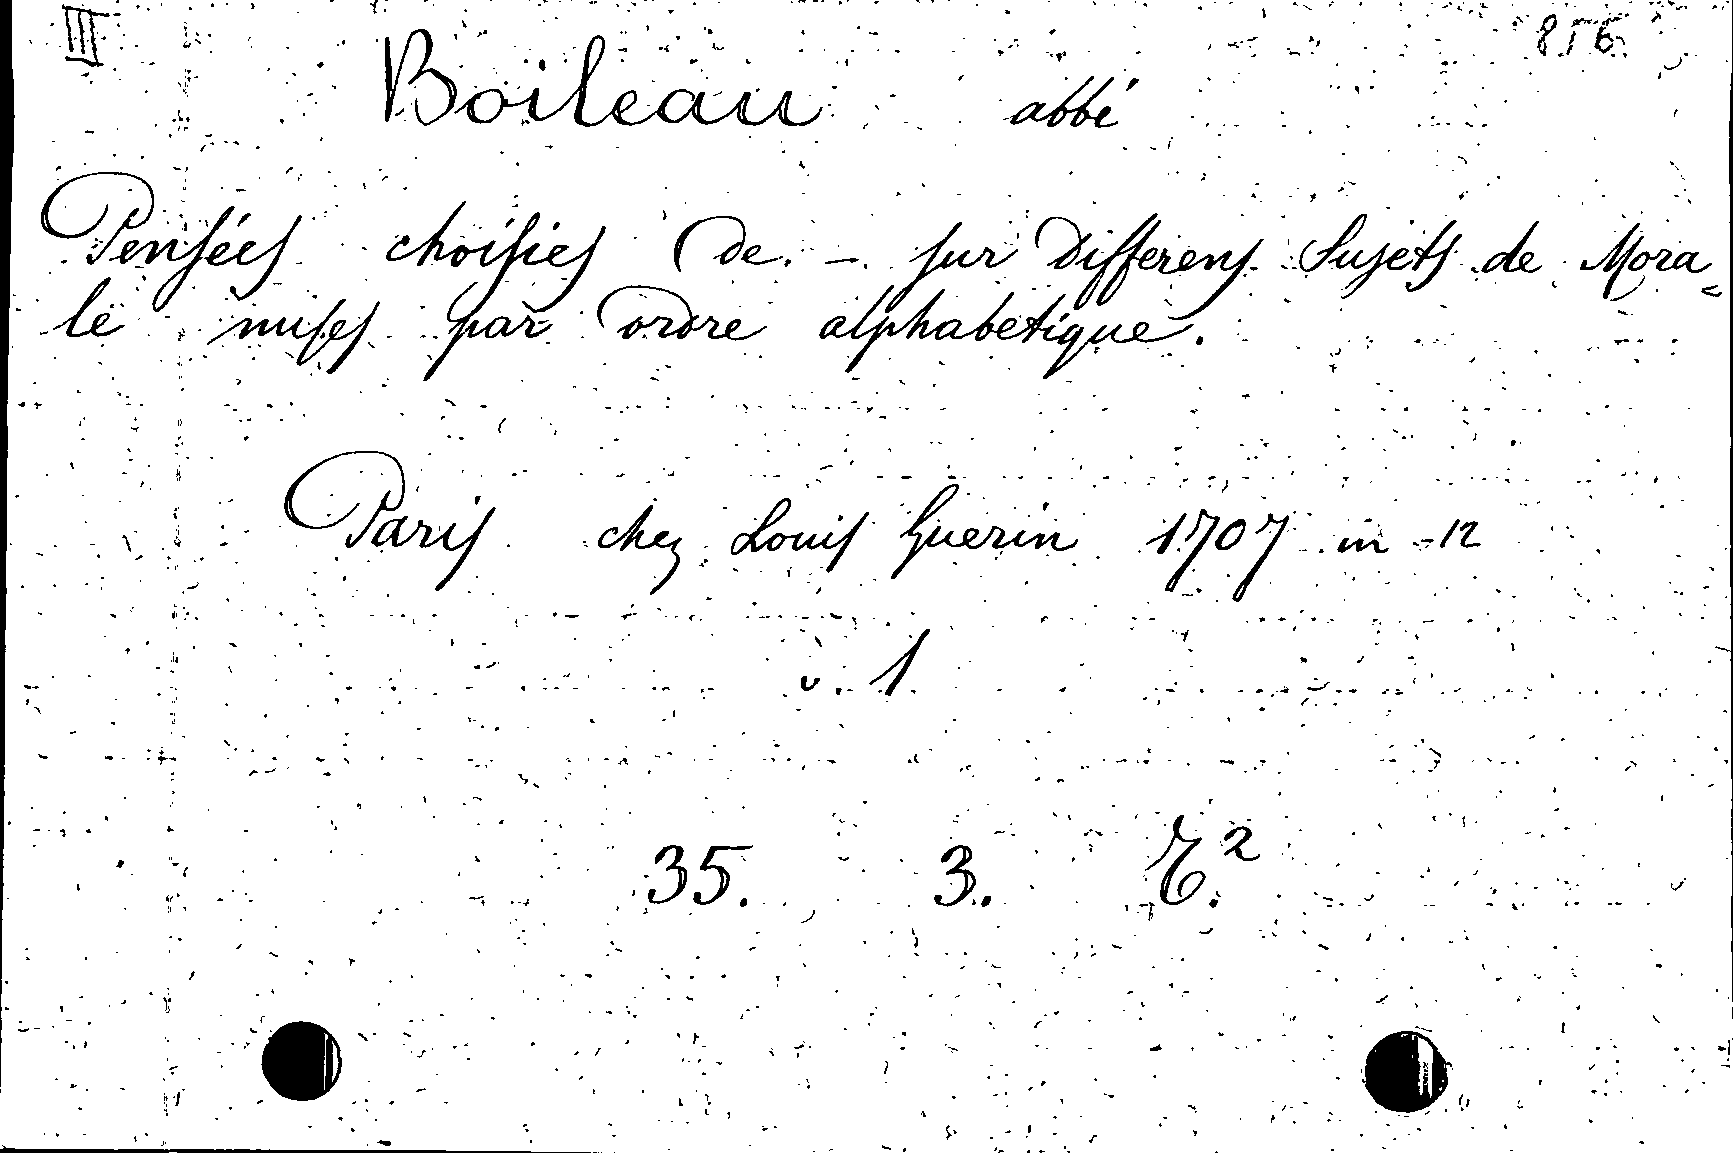 III 856
Boileau abbé
Penſées choiſies (de. — ſur Differens Sujets de Mora=
le miſes par ordre alphabetique.
Paris chez Louis Guerin 1707 in -12
v. 1
35. 3.